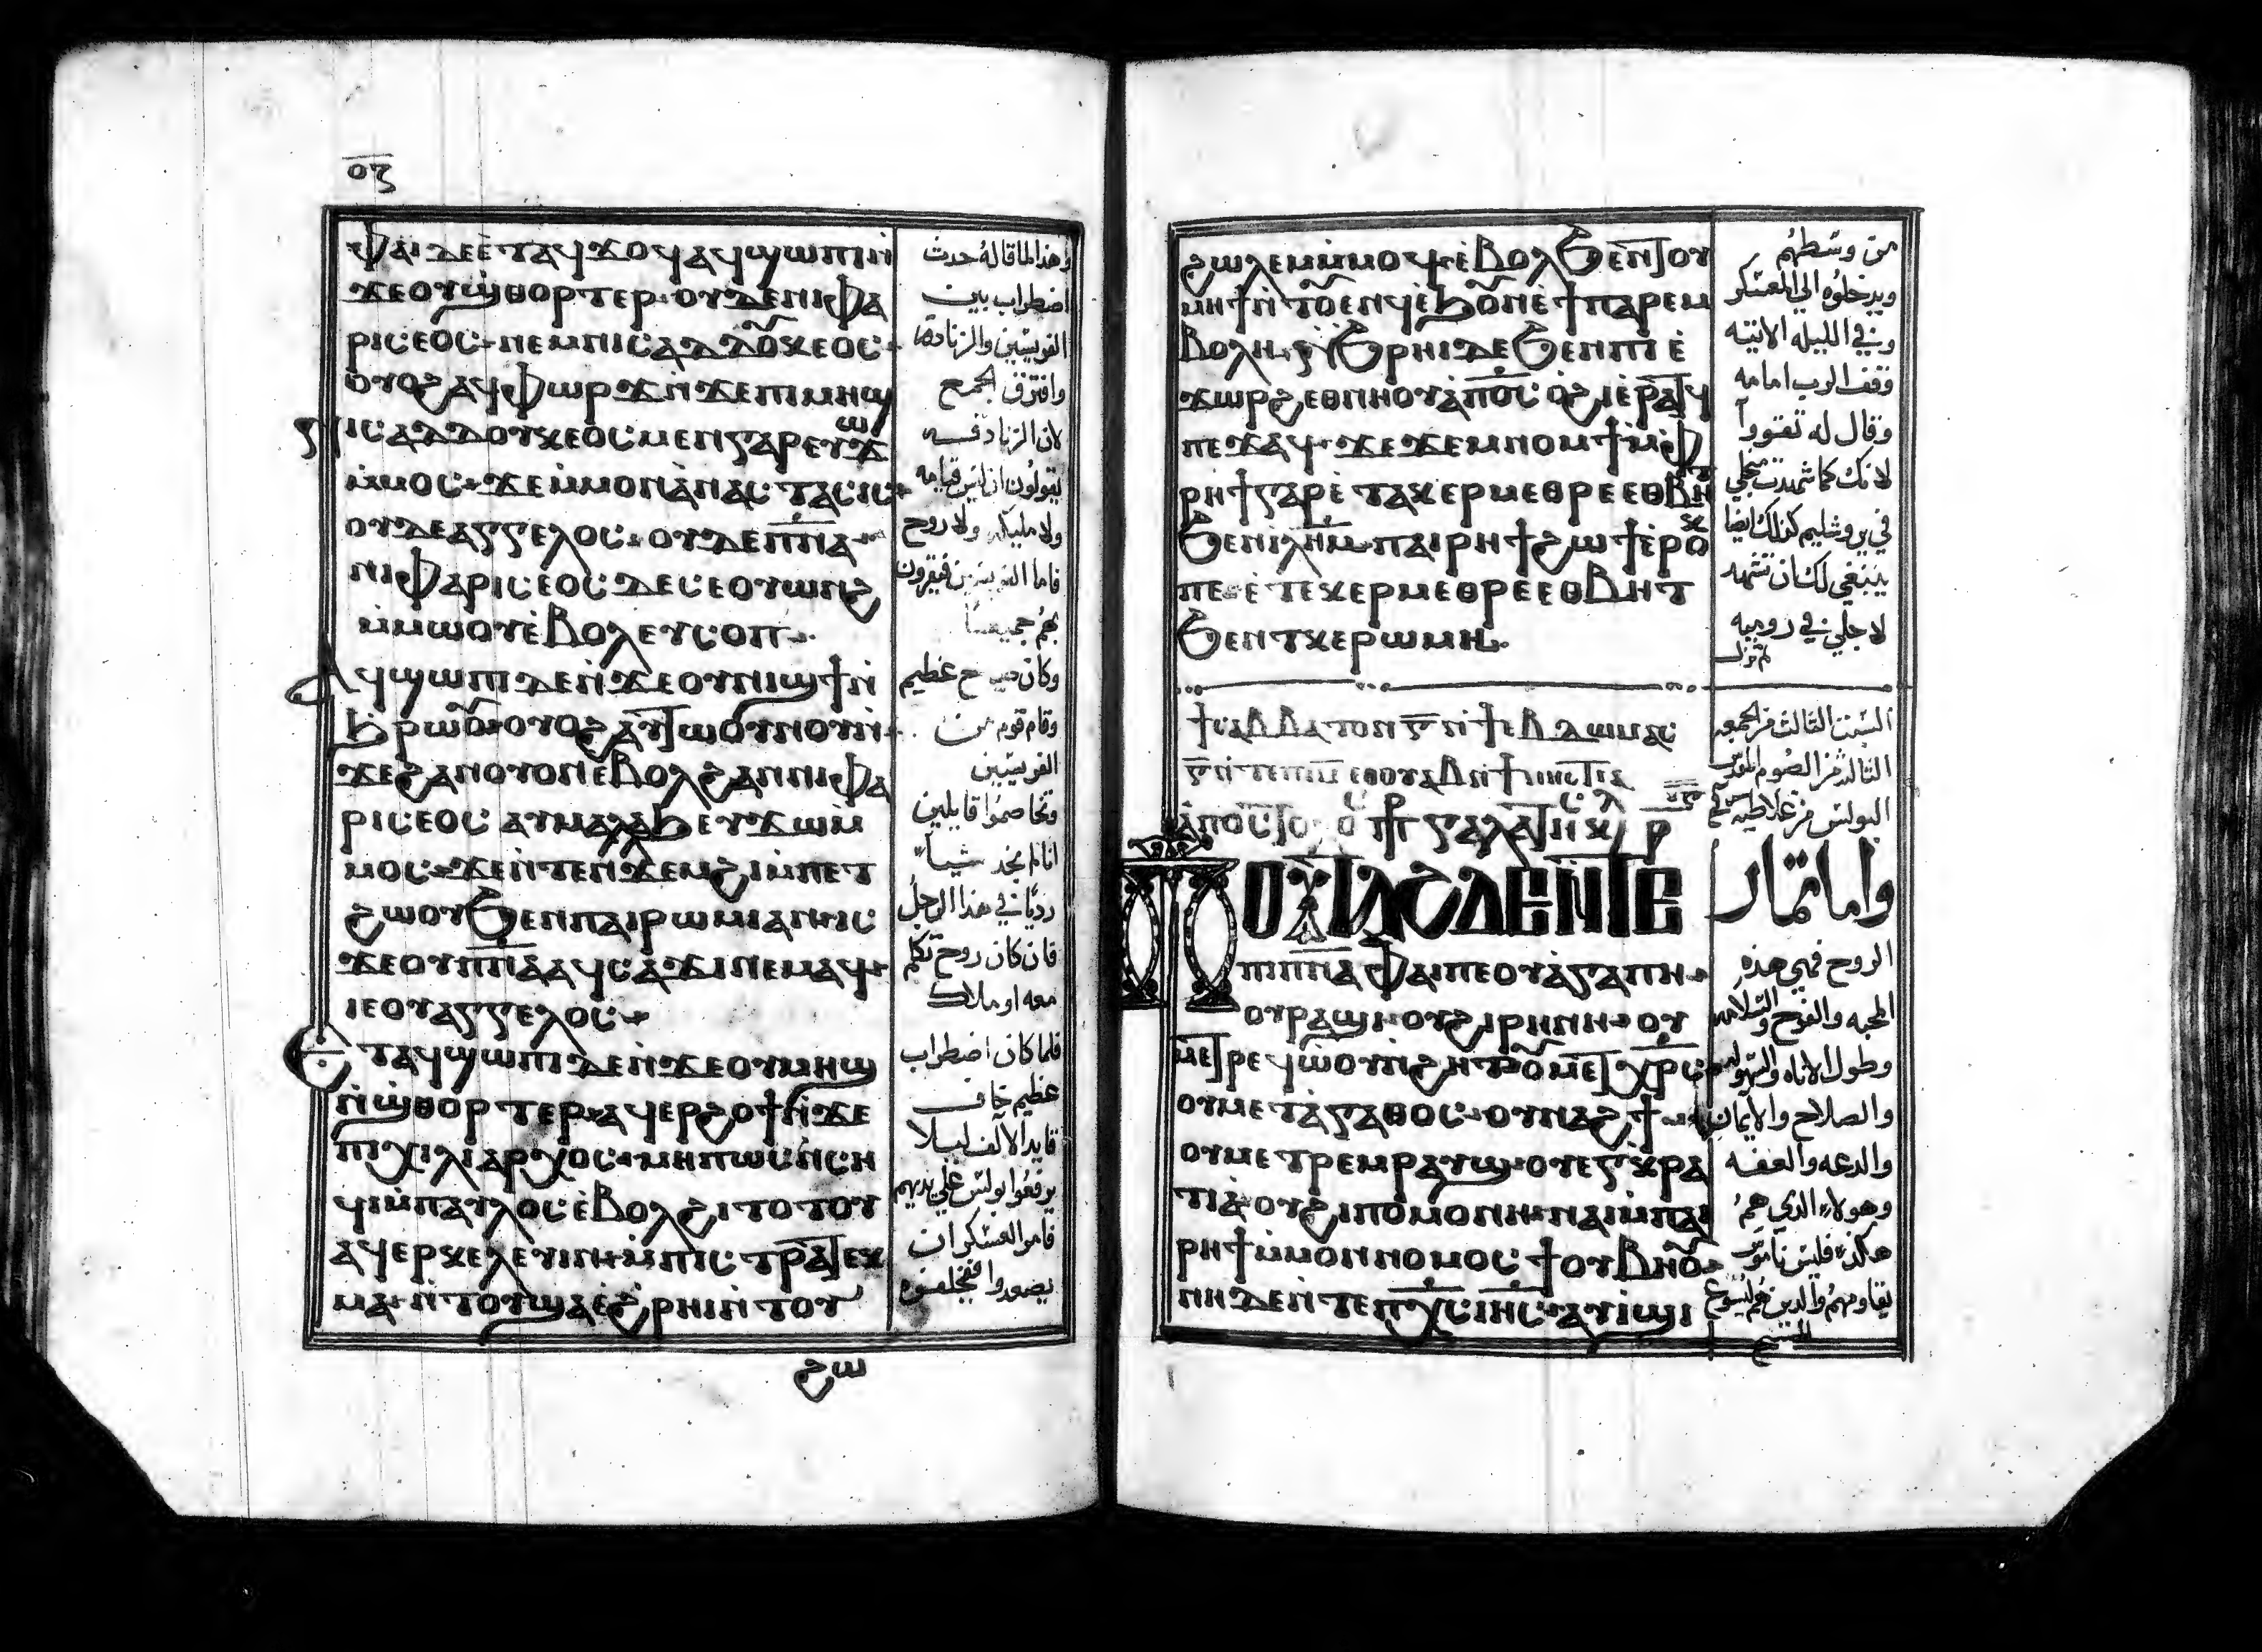 ⲟⲍ
ⲫⲁⲓ ⲇⲉ ⲉ̀ⲧⲁϥϫⲟϥ ⲁϥϣⲱⲡⲓ ⲛ̀
ϫⲉ ⲟⲩϣⲑⲟⲣⲧⲉⲣ ⲟⲩⲇⲉ ⲛⲓⲫⲁ
ⲣⲓⲥⲉⲟⲥ ⲛⲉⲙ ⲛⲓⲥⲁⲇⲇⲟⲩⲕⲉⲟⲥ
ⲟⲩⲟϩ ⲁϥⲫⲱⲣϫ ⲛ̀ϫⲉ ⲡⲓⲙⲏϣ
ⲓⲥⲁⲇⲇⲟⲩⲕⲉⲟⲥ ⲙⲉⲛ ⲅⲁⲣ ⲉⲩϫⲱ
ⲙ̀ⲙⲟⲥ ϫⲉ ⲙ̀ⲙⲟⲛ ⲁ̀ⲛⲁⲥⲧⲁⲥⲓⲥ
ⲟⲩⲇⲉ ⲁⲅⲅⲉⲗⲟⲥ ⲟⲩⲇⲉ ⲡ̅ⲛ̅ⲁ̅
ⲛⲓⲫⲁⲣⲓⲥⲉⲟⲥ ⲇⲉ ⲥⲉⲟⲩⲱⲛϩ
ⲙ̀ⲙⲱⲟⲩ ⲉ̀ⲃⲟⲗ ⲉⲩⲥⲟⲡ
ⲁϥϣⲱⲡⲓ ⲇⲉ ⲛ̀ϫⲉ ⲟⲩⲛⲓϣϯ ⲛ̀
ϧⲣⲱⲟⲩ ⲟⲩⲟϩ ⲁⲩⲧⲱⲟⲩⲛⲟⲩ ⲛ̀
ϫⲉ ϩⲁⲛⲟⲩⲟⲛ ⲉ̀ⲃⲟⲗ ϩⲁ ⲛⲓⲫⲁ
ⲣⲓⲥⲉⲟⲥ ⲁⲩⲙⲗⲁϧ ⲉⲩϫⲱ ⲙ̀
ⲙⲟⲥ ϫⲉ ⲛ̀ⲧⲉⲛϫⲉⲙ ϩⲗⲓ ⲙ̀ⲡⲉⲧ
ϩⲱⲟⲩ ϧⲉⲛ ⲡⲁⲓⲣⲱⲙⲓ ⲁⲛ ⲓⲥ
ϫⲉ ⲟⲩⲡ̅ⲛ̅ⲁ̅ ⲁϥⲥⲁϫⲓ ⲛⲉⲙⲁϥ
ⲓⲉ ⲟⲩⲁⲅⲅⲉⲗⲟⲥ
ⲉⲧⲁϥϣⲱⲡⲓ ⲇⲉ ⲛ̀ϫⲉ ⲟⲩⲙⲏϣ
ⲛ̀ϣⲑⲟⲣⲧⲉⲣ ⲁϥⲉⲣϩⲟϯ ⲛ̀ϫⲉ
ⲡⲓⲭⲓⲗⲓⲁⲣⲭⲟⲥ ⲙⲏⲡⲱⲥ ⲛ̀ⲥⲏ
ϥⲓ ⲙ̀ⲡⲁⲩⲗⲟⲥ ⲉ̀ⲃⲟⲗ ϩⲓⲧⲟⲧⲟⲩ
ⲁϥⲉⲣⲕⲉⲗⲉⲩⲓⲛ ⲙ̀ⲡⲓⲥⲧⲣⲁⲧⲉⲩ
ⲙⲁ ⲛ̀ⲧⲟⲩϣⲉ ⲉ̀ϧⲣⲏⲓ ⲛ̀ⲧⲟⲩ
ϩⲱ
وهذا لما قاله حدث
اضطراب بين
الفريسيين والزنادقه
وافترق الجمع
لان الزنادقه
يقولون ان ليس قيامه
ولا مليكه ولا روح
فاما الفريسيين فيقرون
بهم جميعاً
وكان صياح عظيم
وقام قوم من
الفريسيين
وتخاصموا قايلين
اننا لم نجد شيأ
رديًا في هذا الرجل
فان كان روح تكلم
معه او ملاك
فلما كان اضطراب
عظيم خاف
قايد الألف ليلا
يرفعوا بولس علي يديهم
فامر العسكر ان
ϩⲱⲗⲉⲙ ⲙ̀ⲙⲟϥ ⲉ̀ⲃⲟⲗ ϧⲉⲛ ⲧⲟⲩ
ⲙⲏϯ ⲛ̀ⲧⲟⲩⲉⲛϥ ⲉ̀ϧⲟⲩⲛ ⲉ̀ϯⲡⲁⲣⲉⲙ
ⲃⲟⲗⲏ ⲛ̀ϧⲣⲏⲓ ⲇⲉ ϧⲉⲛ ⲡⲓⲉ̀
ϫⲱⲣϩ ⲉⲑⲛⲏⲟⲩ ⲁ̀ ⲡ̅ⲟ̅ⲥ̅ ⲟ̀ϩⲓ ⲉ̀ⲣⲁⲧϥ
ⲡⲉϫⲁϥ ϫⲉ ϫⲉⲙⲛⲟⲙϯ ⲙ̀ⲫ
ⲣⲏϯ ⲅⲁⲣ ⲉ̀ⲧⲁⲕⲉⲣⲙⲉⲑⲣⲉ ⲉⲑⲃⲏⲧ
ϧⲉⲛ ⲓⲗ̅ⲏ̅ⲙ̅ ⲡⲁⲓⲣⲏϯ ϩⲱϯ ⲉ̀ⲣⲟⲕ
ⲡⲉ ⲉ̀ⲧⲉⲕⲉⲣⲙⲉⲑⲣⲉ ⲉⲑⲃⲏⲧ
ϧⲉⲛ ⲧⲕⲉⲣⲱⲙⲏ
من وسطهم
ويدخلوه الي المعسكر
وفي الليله الاتيه
وقف الرب امامه
وقال له تقووا
لانك كما شهدت من اجلي
في يروشليم كذلك ايضا
ينبغي لك ان تشهد
لاجلي في روميه
ϯⲥⲁⲃⲃⲁⲧⲟⲛ ⲅ̅ ⲛ̀ϯⲉⲃⲇⲱⲙⲁⲥ
ⲅ̅ ⲛ̀ⲧⲉ ⲡⲓⲙ̅ ⲉⲑⲟⲩⲁⲃ ⲛ̀ϯⲛⲏⲥⲧⲓⲁ
السبت الثالث من الجمعه
الثالثه من الصوم المقدس
البولس من غلاطيه
ⲡⲟⲩⲧⲁϩ ⲇⲉ ⲛ̀ⲧⲉ
ⲡⲓⲡ̅ⲛ̅ⲁ̅ ⲫⲁⲓ ⲡⲉ ⲟⲩⲁ̀ⲅⲁⲡⲏ
ⲟⲩⲣⲁϣⲓ ⲟⲩϩⲓⲣⲏⲛⲏ ⲟⲩ
ⲙⲉⲧⲣⲉϥⲱⲟⲩⲛ̀ϩⲏⲧ ⲟⲩⲙⲉⲧⲭ̅ⲣ̅ⲥ̅
ⲟⲩⲙⲉⲧⲁ̀ⲅⲁⲑⲟⲥ ⲟⲩⲛⲁϩϯ
ⲟⲩⲙⲉⲧⲣⲉⲙⲣⲁⲩϣ ⲟⲩⲉⲅⲕⲣⲁ
ⲧⲓⲁ ⲟⲩϩⲓⲡⲟⲙⲟⲛⲏ ⲛⲁⲓ ⲙ̀ⲡⲁⲓ
ⲣⲏϯ ⲙ̀ⲙⲟⲛ ⲛⲟⲙⲟⲥ ϯ ⲟⲩⲃⲏⲟⲩ
ⲛⲏ ⲇⲉ ⲛ̀ⲧⲉ ⲡⲭ̅ⲥ̅ ⲓⲏ̅ⲥ̅ ⲁⲩⲓ̀ϣⲓ
واما ثمار
الروح فهي هذه
المحبه والفرح والسلامه
وطول الاناه والسهوله
والصلاح والأيمان
والدعه والعفه
وهولاء الذي هم
هكذا فليس ناموس
يقاومهم والذين هم ليسوع
المسيح